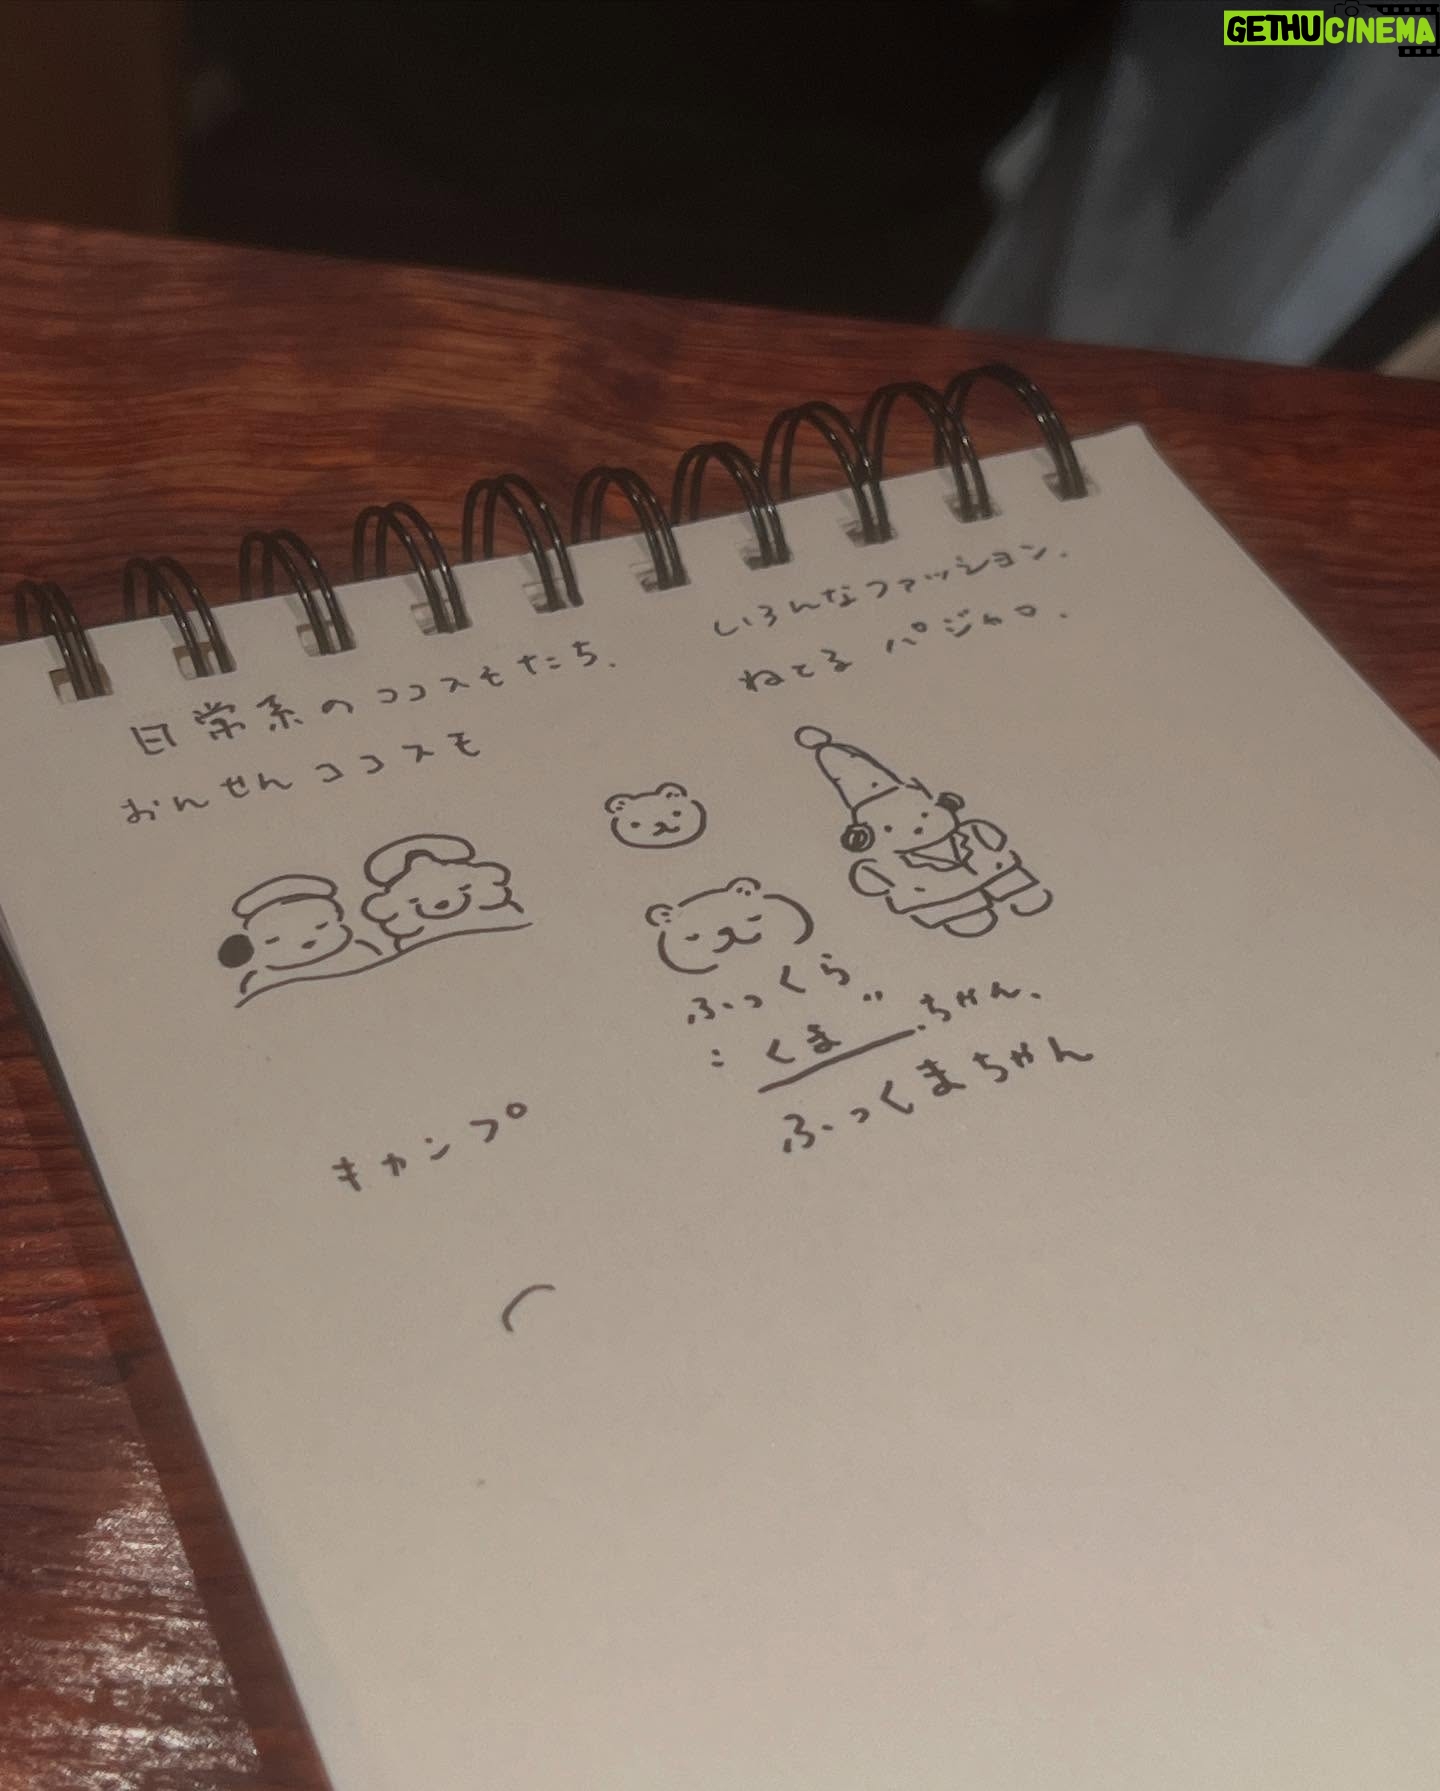 GETHUCINEMA
日常系のココスモたち.
おんせんココスモ
いろんなファッション.
ねてるパジャマ.
ふっくら
:くま.ちゃん.
ふっくまちゃん
キャンプ